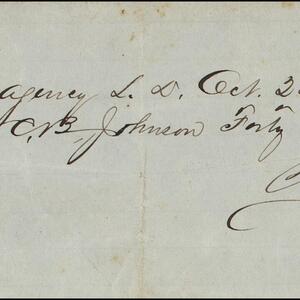 agency L. D. Oct. 2
C. B. Johnson Forty